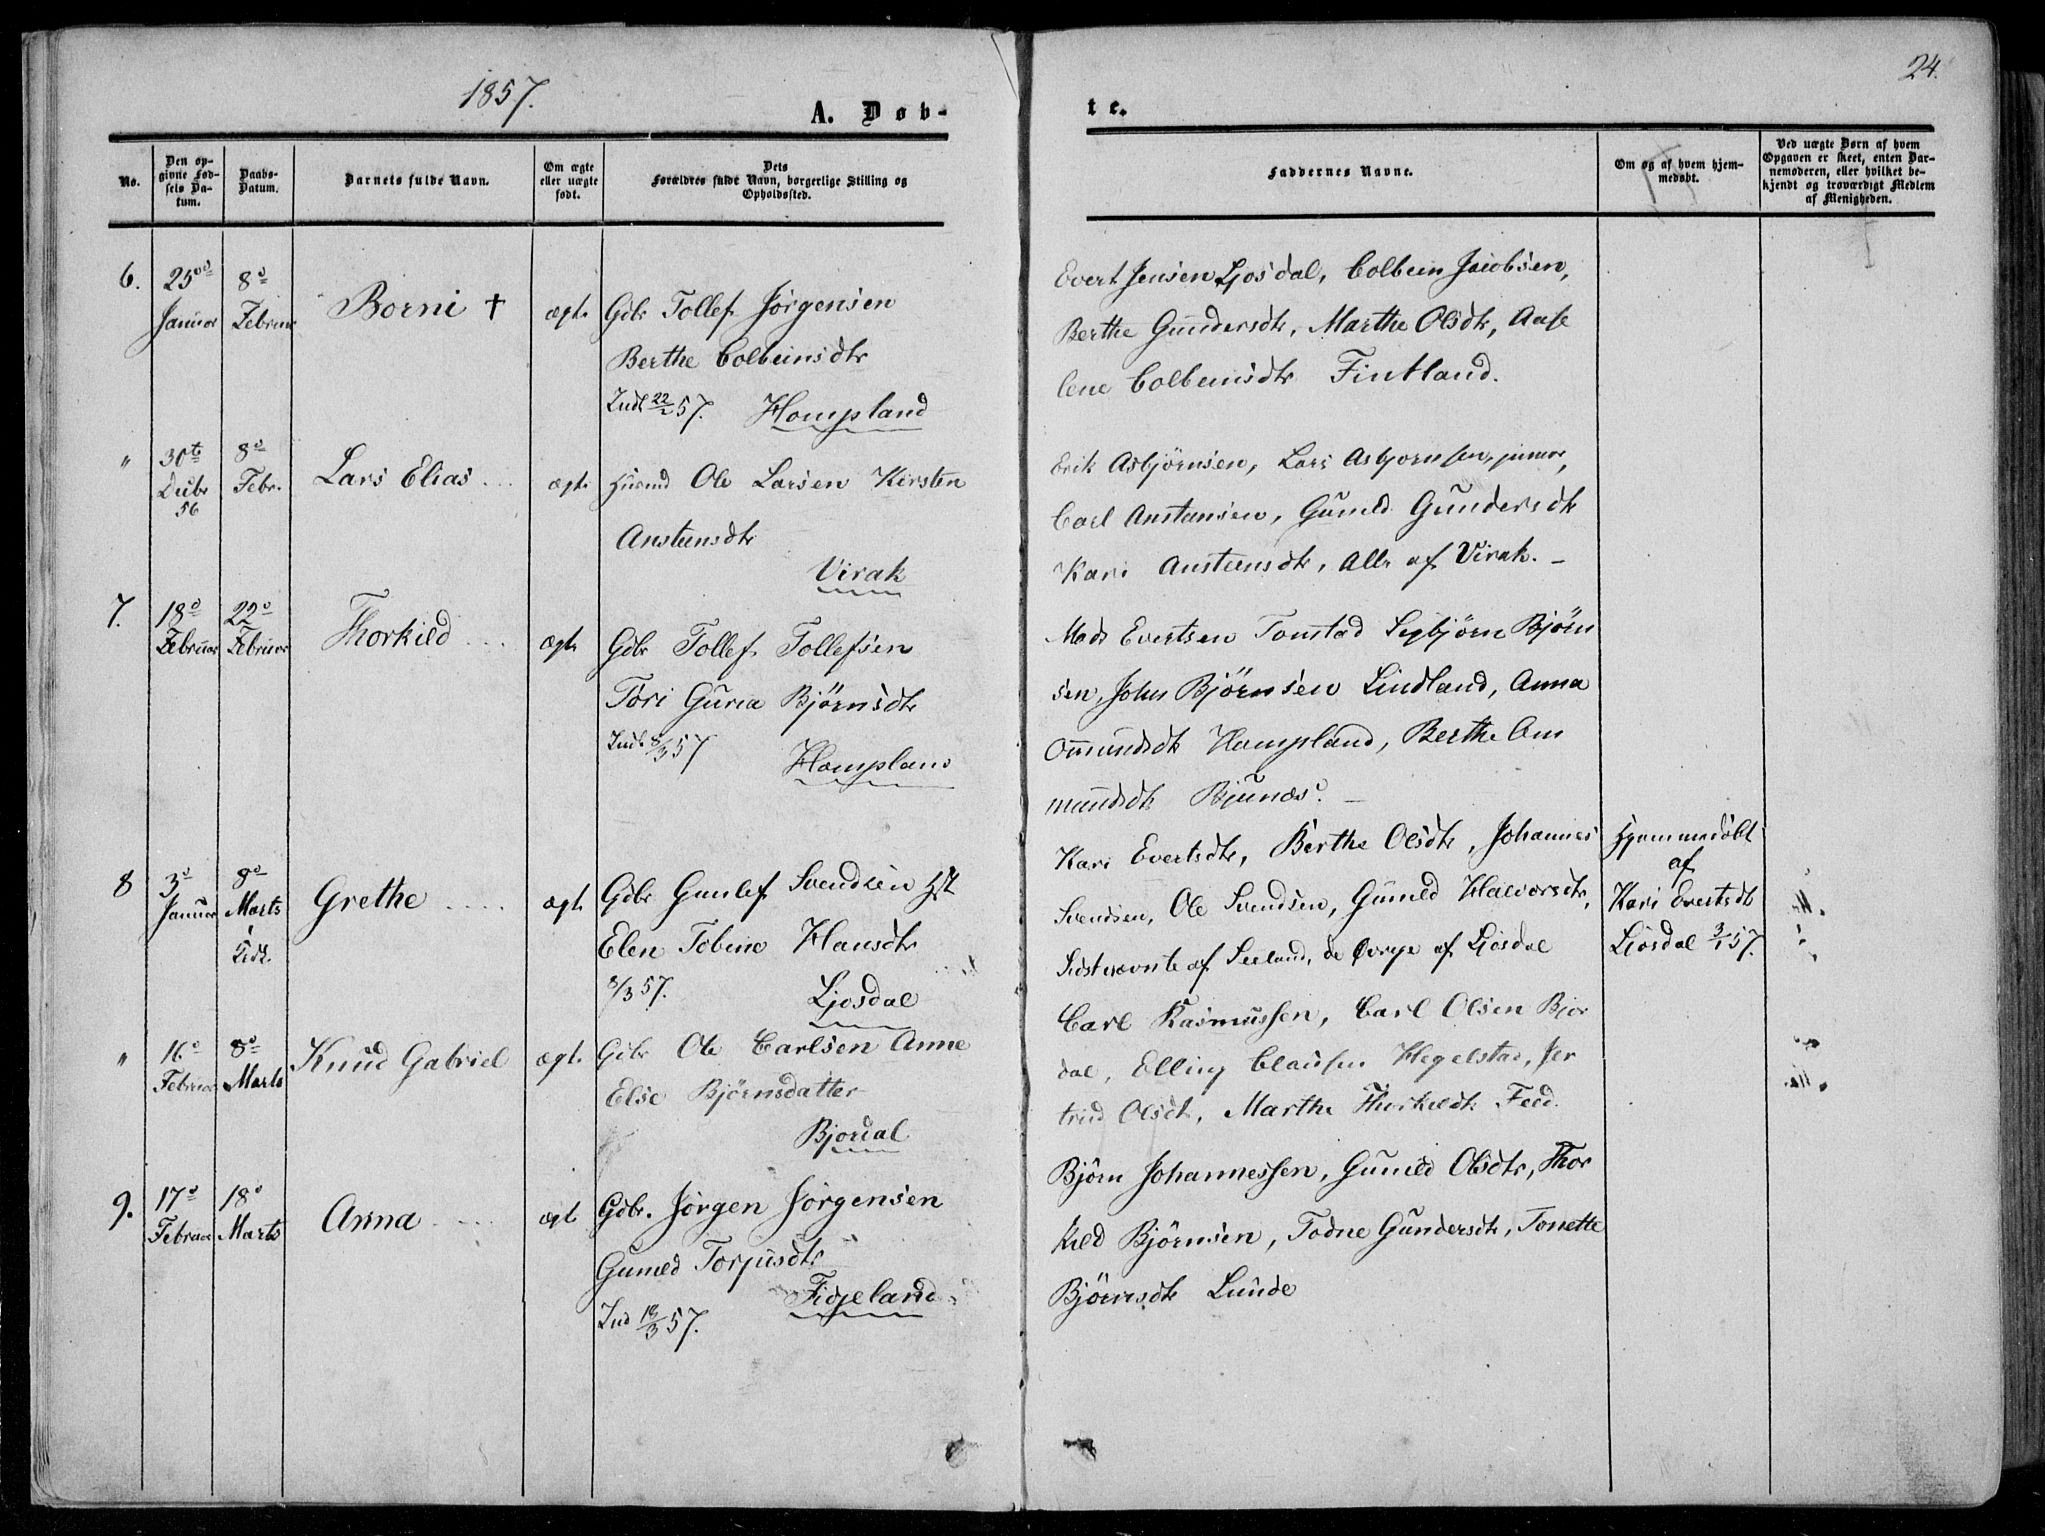 1857.
24.
A. Døb-
te.
No.
Den op-
givne Fød-
sels Da-
tum.
Daabs-
Datum.
Barnets fulde Navn.
Om ægte
eller uægte
født.
Dets
Forældres fulde Navn, borgerlige Stilling og
Opholdssted.
Faddernes Navne.
Om og af hvem hjem-
medøbt.
Ved uægte Børn af hvem
Opgaven er skeet, enten Bar-
nemoderen, eller hvilket be-
kjendt og troværdigt Medlem
af Menigheden.
6.
25
Januar
8
Februar
Borni †
ægte
Gbr Tollef Jørgensen
Berthe Colbeinsdtr
Ind 57. Hompland
Evert Jensen Ljosdal, Colbein Jacobsen,
Berthe Gundersdtr, Marthe Olsdtr, Aase
lene Colbeinsdtr Fintland.
"
30te
Decbr
56
8
Febr.
Lars Elias
ægte
Huusmd Ole Larsen Kirsten
Austeensdtr
Virak
Erik Asbjørnsen, Lars Asbjørnsen junior,
Carl Austensen, Guneld Gundersdtr
Kari Austeensdtr, Alle af Virak. –
7.
18
Februar
22
Februar
Thorkild
ægte
Gbr Tollef Tollefsen
Tori Guria Bjørnsdtr
Ind 8/3 57
Hompland
Mads Evertsen Tomstad Segbjørn Bjørn
sen, John Bjørnsen Lindland, Anna
Omundsdtr Hompland, Berthe Om
mundsdtr Bjunæs. –
8
3
Januar
8
Marts
i
Fede.
Grethe
ægte
Gbr Gunlef Svendsen
Elen Tobine Hansdtr
8/3 57.
Ljosdal
Kari Evertsdtr, Berthe Olsdtr, Johannes
Svendsen, Ole Svendsen, Guneld Halvorsdtr,
Sidstnævnte af Seeland, de Øvrige af Ljosdal
Hjemmedøbt
af
Kari Evertsdtr
Ljosdal 3/1 57.
"
16
Februar
8
Marts
Knud Gabriel
ægte
Gbr Ole Carlsen Anne
Else Bjørnsdatter
Bjordal
Carl Rasmussen, Carl Olsen Bjor
dal, Elling Clausen Hegelstad, Jer
trud Olsdtr, Marthe Thorkildsdtr Feed.
9.
17
Februar
18
Marts
Anna
ægte
Gbr. Jørgen Jørgensen
Guneld Torjusdtr
Fidjeland
Ind 18/3 57.
Bjørn Johannessen, Guneld Olsdtr, Thor
kild Bjørnsen, Todne Gundersdtr, Tonette
Bjørnsdtr Lunde